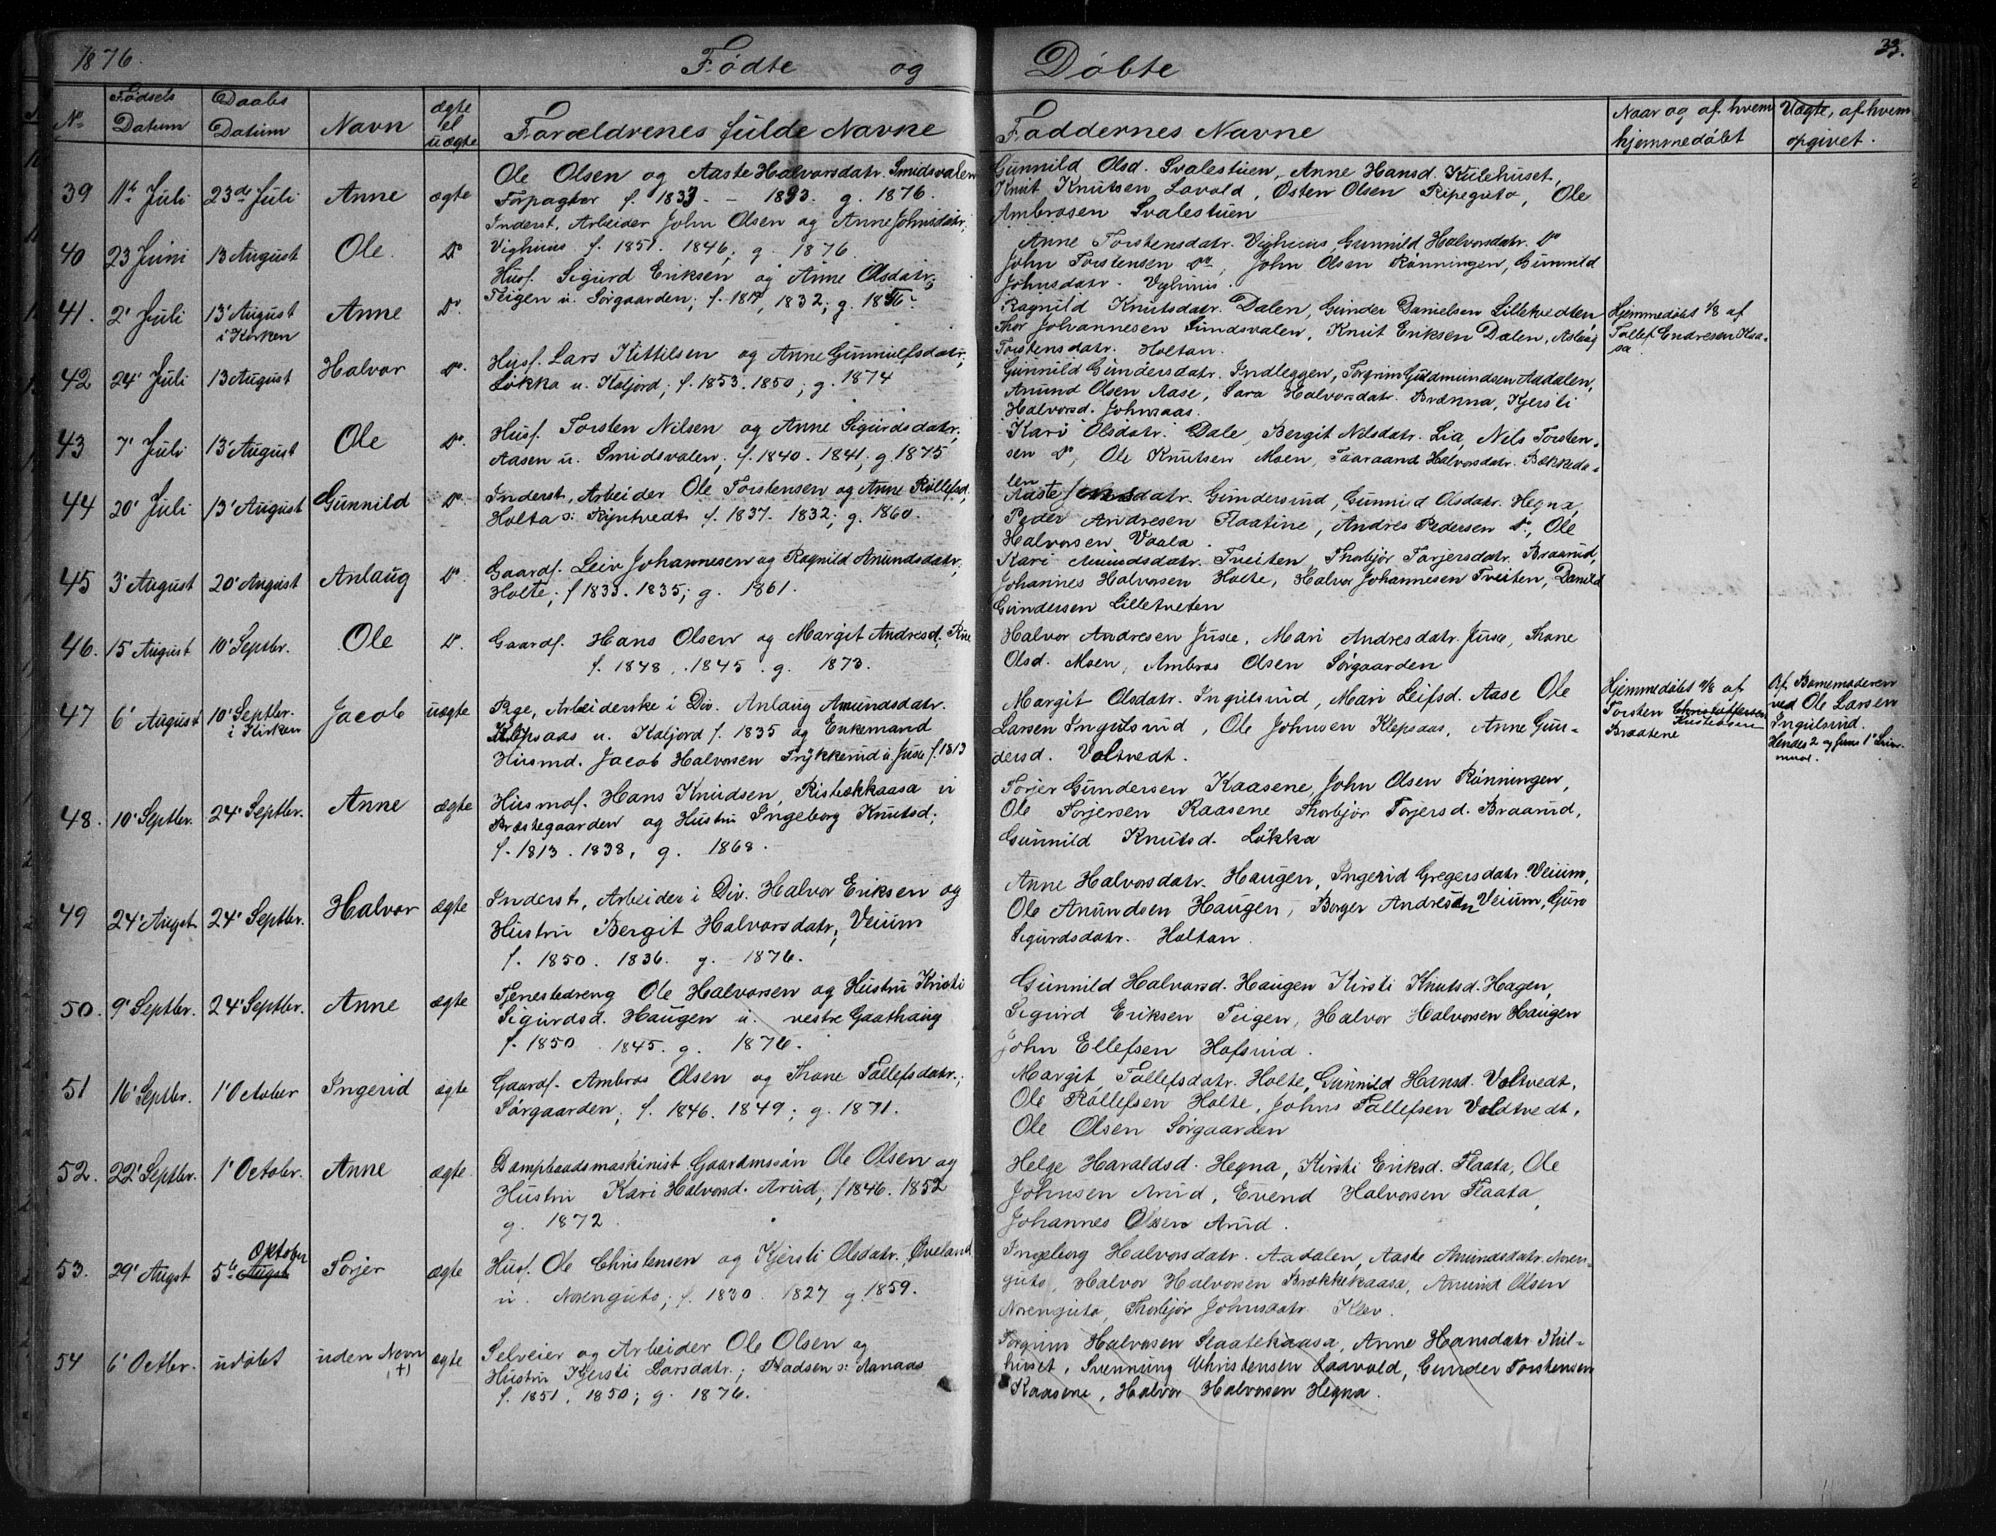 1876.
Fødte og Døbte
33.
No
Fødsels Datum
Daabs Datum
Navn
ægte el uægte
Forældrenes fulde Navne
Faddernes Navne
Naar og af hvem hjemmedøbt
Uægte, af hvem opgivet.
39 11te Juli 23de Juli Anne ægte
Ole Olsen og Aaste Halvorsdatr. Smidsvalen
Forpagter f. 1833 - 1833. g. 1876.
Gunnild Olsd. Svalestuen, Anne Hansd. Kulehuset,
Knut Knutsen Lavold, Østen Olsen Ripeguto, Ole
Ambrosen Svalestuen
40 23 Juni 13 August Ole Do
Inderst, Arbeider John Olsen og Anne Johnsdatr.
Vighuus f. 1851. 1846; g. 1876.
Anne Torstensdatr. Vighuus, Gunnild Halvorsdatr. Do
John Torstensen Do, John Olsen Rønningen, Gunnild
Johnsdatr. Vighuus.
41. 2' Juli 13' August i Kirken Anne Do.
Husf. Sigurd Eriksen og Anne Olsdatr.;
Teigen u. Sørgaarden; f. 1817, 1832; g.
Ragnild Knutsdatr. Dalen, Gunder Danielsen Lilletvedten
Thor Johannesen Smidsvalen, Knut Eriksen Dalen, Aslaug
Torstensdatr. Holtan.
Hjemmedøbt 1/8 af
Tollef Endresen Kaa-
sa.
42 24' Juli 13 August Halvor Do.
Husf. Lars Kittilsen og Anne Gunnulfsdatr.;
Løkka u. Kaljord; f. 1853. 1850; g. 1874
Gunnild Gundersdatr. Indleggen, Torgrim Guldmundsen Aadalen,
Anund Olsen Aase, Sara Halvorsdatr. Brænna, Kjersti
Halvorsd. Johnsaas.
43 7' Juli 13' August Ole Do.
Husf. Torsten Nilsen og Anne Sigurdsdatr.;
Aasen u. Smidsvalen; f. 1840. 1841; g. 1875
Kari Olsdatr. Dale, Bergit Nilsdatr. Lia, Nils Torsten-
sen Do, Ole Knutsen Moen, Taaraand Halvorsdatr. Bækkeda-
len
44 20' Juli 13' August Gunnild Do
Inderst, Arbeider Ole Torstensen og Anne Rollefsd.
Holta f. 1837. 1832; g. 1860.
Aaste Gundersrud, Gunnild Olsdatr. Hegna,
Peder Andresen Flaatine, Andres Pedersen Do, Ole
Halvorsen Vaala.
45 3' August 20' August Anlaug Do.
Gaardf. Leiv Johannesen og Ragnild Anundsdatr.;
Holte; f 1833. 1835; g. 1861.
Kari Anundsdatr. Tveiten, Thorbjør Torjersdatr. Braarud,
Johannes Halvorsen Holte, Halvor Johannesen Tveiten, Daniel
Gundersen Lilletveten
46. 15' August 10' Septbr. Ole Do.
Gaardf. Hans Olsen og Margit Andresd.
f. 1848. 1845 g. 1873.
Halvor Andresen Juse, Mari Andresdatr. Juse, Thone
Olsd. Moen, Ambros Olsen Sørgaarden
47 6' August 10' Septbr. i Kirken Jacob uægte
Pige, Arbeiderske i Div. Anlaug Amundsdatr.
Klepsaas u. Kaljord f. 1835 og Enkemand
Husmd. Jacob Halvorsen Trykkerud u. Juse f. 1813
Margit Olsdatr. Ingulsrud, Mari Leifsd. Aase Ole
Larsen Ingulsrud, Ole Johnsen Klepsaas, Anne Gun-
dersd. Voltvedt.
Hjemmedøbt af
Torsten Christoffersen
Braatene
Af Barnemoderen
ved Ole Larsen
Ingulsrud.
Hendes 2 og hans 1'
48. 10' Septbr. 24' Septbr. Anne ægte
Husmdf. Hans Knudsen, Risbækkaasa u
Præstegaarden og Hustru Ingeborg Knutsd.;
f. 1813. 1838, g. 1868.
Torjer Gundersen Kaasene, John Olsen Rønningen,
Ole Torjersen Kaasene Thorbjør Torjersd. Braarud,
Gunnild Knutsd. Løkka
49 24' Augst 24' Septbr. Halvor ægte
Inderst, Arbeider i Div. Halvor Eriksen og
Hustru Bergit Halvorsdatr., Veium
f. 1850. 1836. g. 1876.
Anne Halvorsdatr. Haugen, Ingerid Gregersdatr. Veium,
Ole Anundsen Haugen, Borger Andresen Veium, Guro
Sigurdsdatr. Holtan.
50. 9' Septbr. 24' Septbr. Anne ægte
Tjenestedreng Ole Halvorsen og Hustru Kristi
Sigurdsd. Haugen u. vestre Gaathaug
f. 1850. 1845. g. 1876.
Gunnild Halvorsd. Haugen Kirsti Knutsd. Hagen,
Sigurd Eriksen Teigen, Halvor Halvorsen Haugen
John Ellefsen Hofsrud.
51 16' Septbr. 1' October Ingerid ægte
Gaardf. Ambros Olsen og Thone Tollefsdatr.;
Sørgaarden; f. 1846. 1849; g. 1871.
Margit Tollefsdatr. Holte, Gunnild Hansd. Voltvedt,
Ole Rollefsen Holte, Johns Tollefsen Voldtvedt,
Ole Olsen Sørgaarden
52. 22' Septbr. 1' Octobr. Anne ægte
Dampbaadsmaskinist, Gaardmssøn Ole Olsen og
Hustru Kari Halvorsd. Arud, f 1846. 1852
g. 1872.
Helge Haraldsd. Hegna, Kirsti Eriksd. Flaata, Ole
Johnsen Arud, Evend Halvorsen Flaata,
Johannes Olsen Arud.
53. 29' Augst 5te Augst Oktober Torjer ægte
Husf. Ole Christensen og Kjersti Olsdatr. Øveland
u. Norenguto; f. 1830. 1827 g. 1859.
Ingeborg Halvorsdatr. Aadalen, Aaste Anundsdatr. Noren-
guto, Halvor Halvorsen Brækkekaasa, Anund Olsen
Norenguto, Thorbjør Johnsdatr. Klev.
54 6' Octbr. udøbt uden Navn +) ægte
Selveier og Arbeider Ole Olsen og
Hustru Kjersti Larsdatr.; Aanaas
f. 1851. 1850; g. 1876.
Torgrim Halvorsen Slaatekaasa, Anne Hansdatr. Kul-
huset, Svennung Christensen Laavold, Gunder Torstensen
Kaasene, Halvor Halvorsen Hegna.